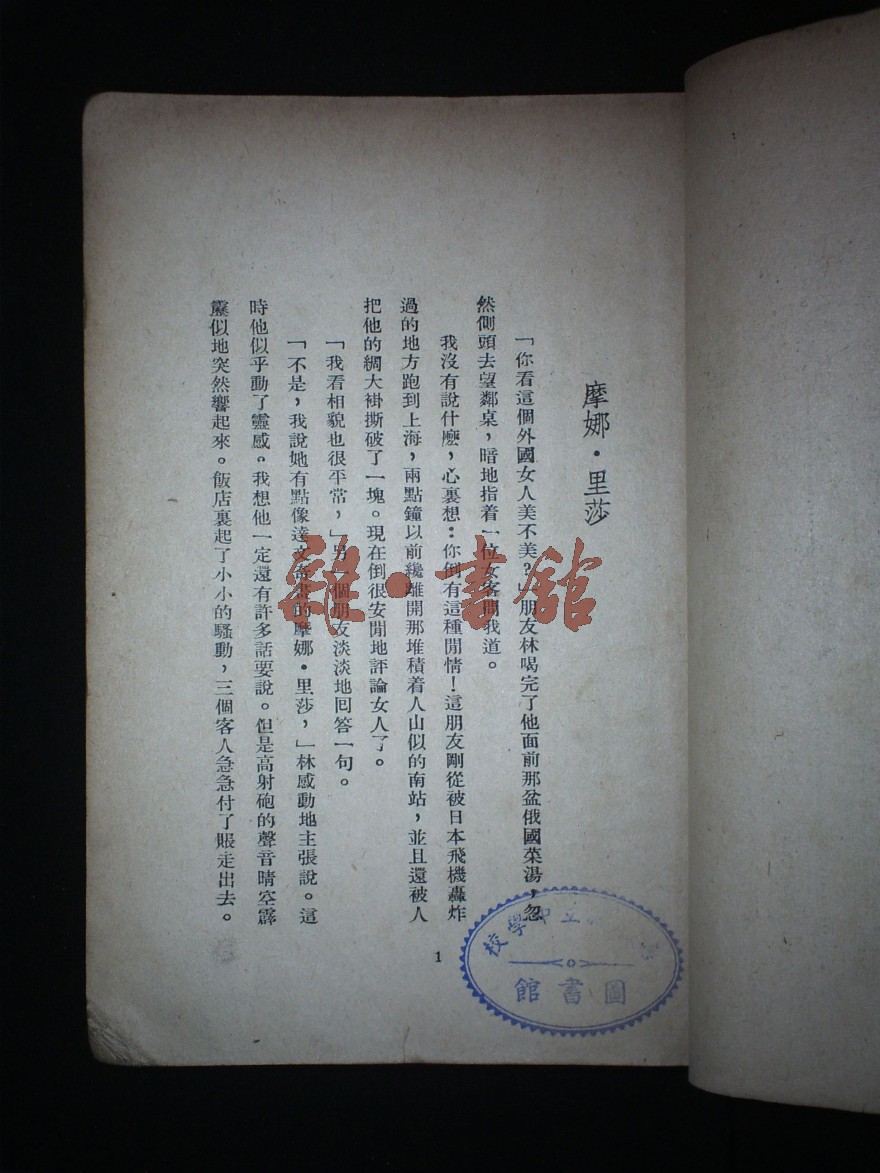 摩娜·里莎
「你看這個外國女人美不美？」朋友林喝完了他面前那盆俄國菜湯，忽
然側頭去望鄰桌，暗地指着一位女客問我道。
我沒有說什麽，心裏想：你倒有這種閒情！這朋友剛從被日本飛機轟炸
過的地方跑到上海，兩點鐘以前纔離開那堆積着人山似的南站，並且還被人
把他的綢大褂撕破了一塊。現在倒很安閒地評論女人了。
「我看相貌也很平常，」另一個朋友淡淡地回答一句。
「不是，我說她有點像達文奇畫的摩娜·里莎，」林感動地主張說。這
時他似乎動了靈感。我想他一定還有許多話要說。但是高射砲的聲音晴空霹
靂似地突然響起來。飯店裏起了小小的騷動，三個客人急急付了賬走出去。
1
雜·書舘
立中學校
圖書館